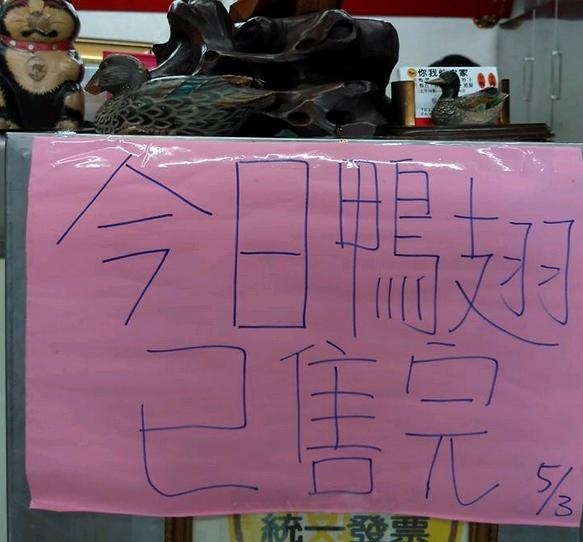 你我
今日鴨翅
已售完
5/3
統一發票